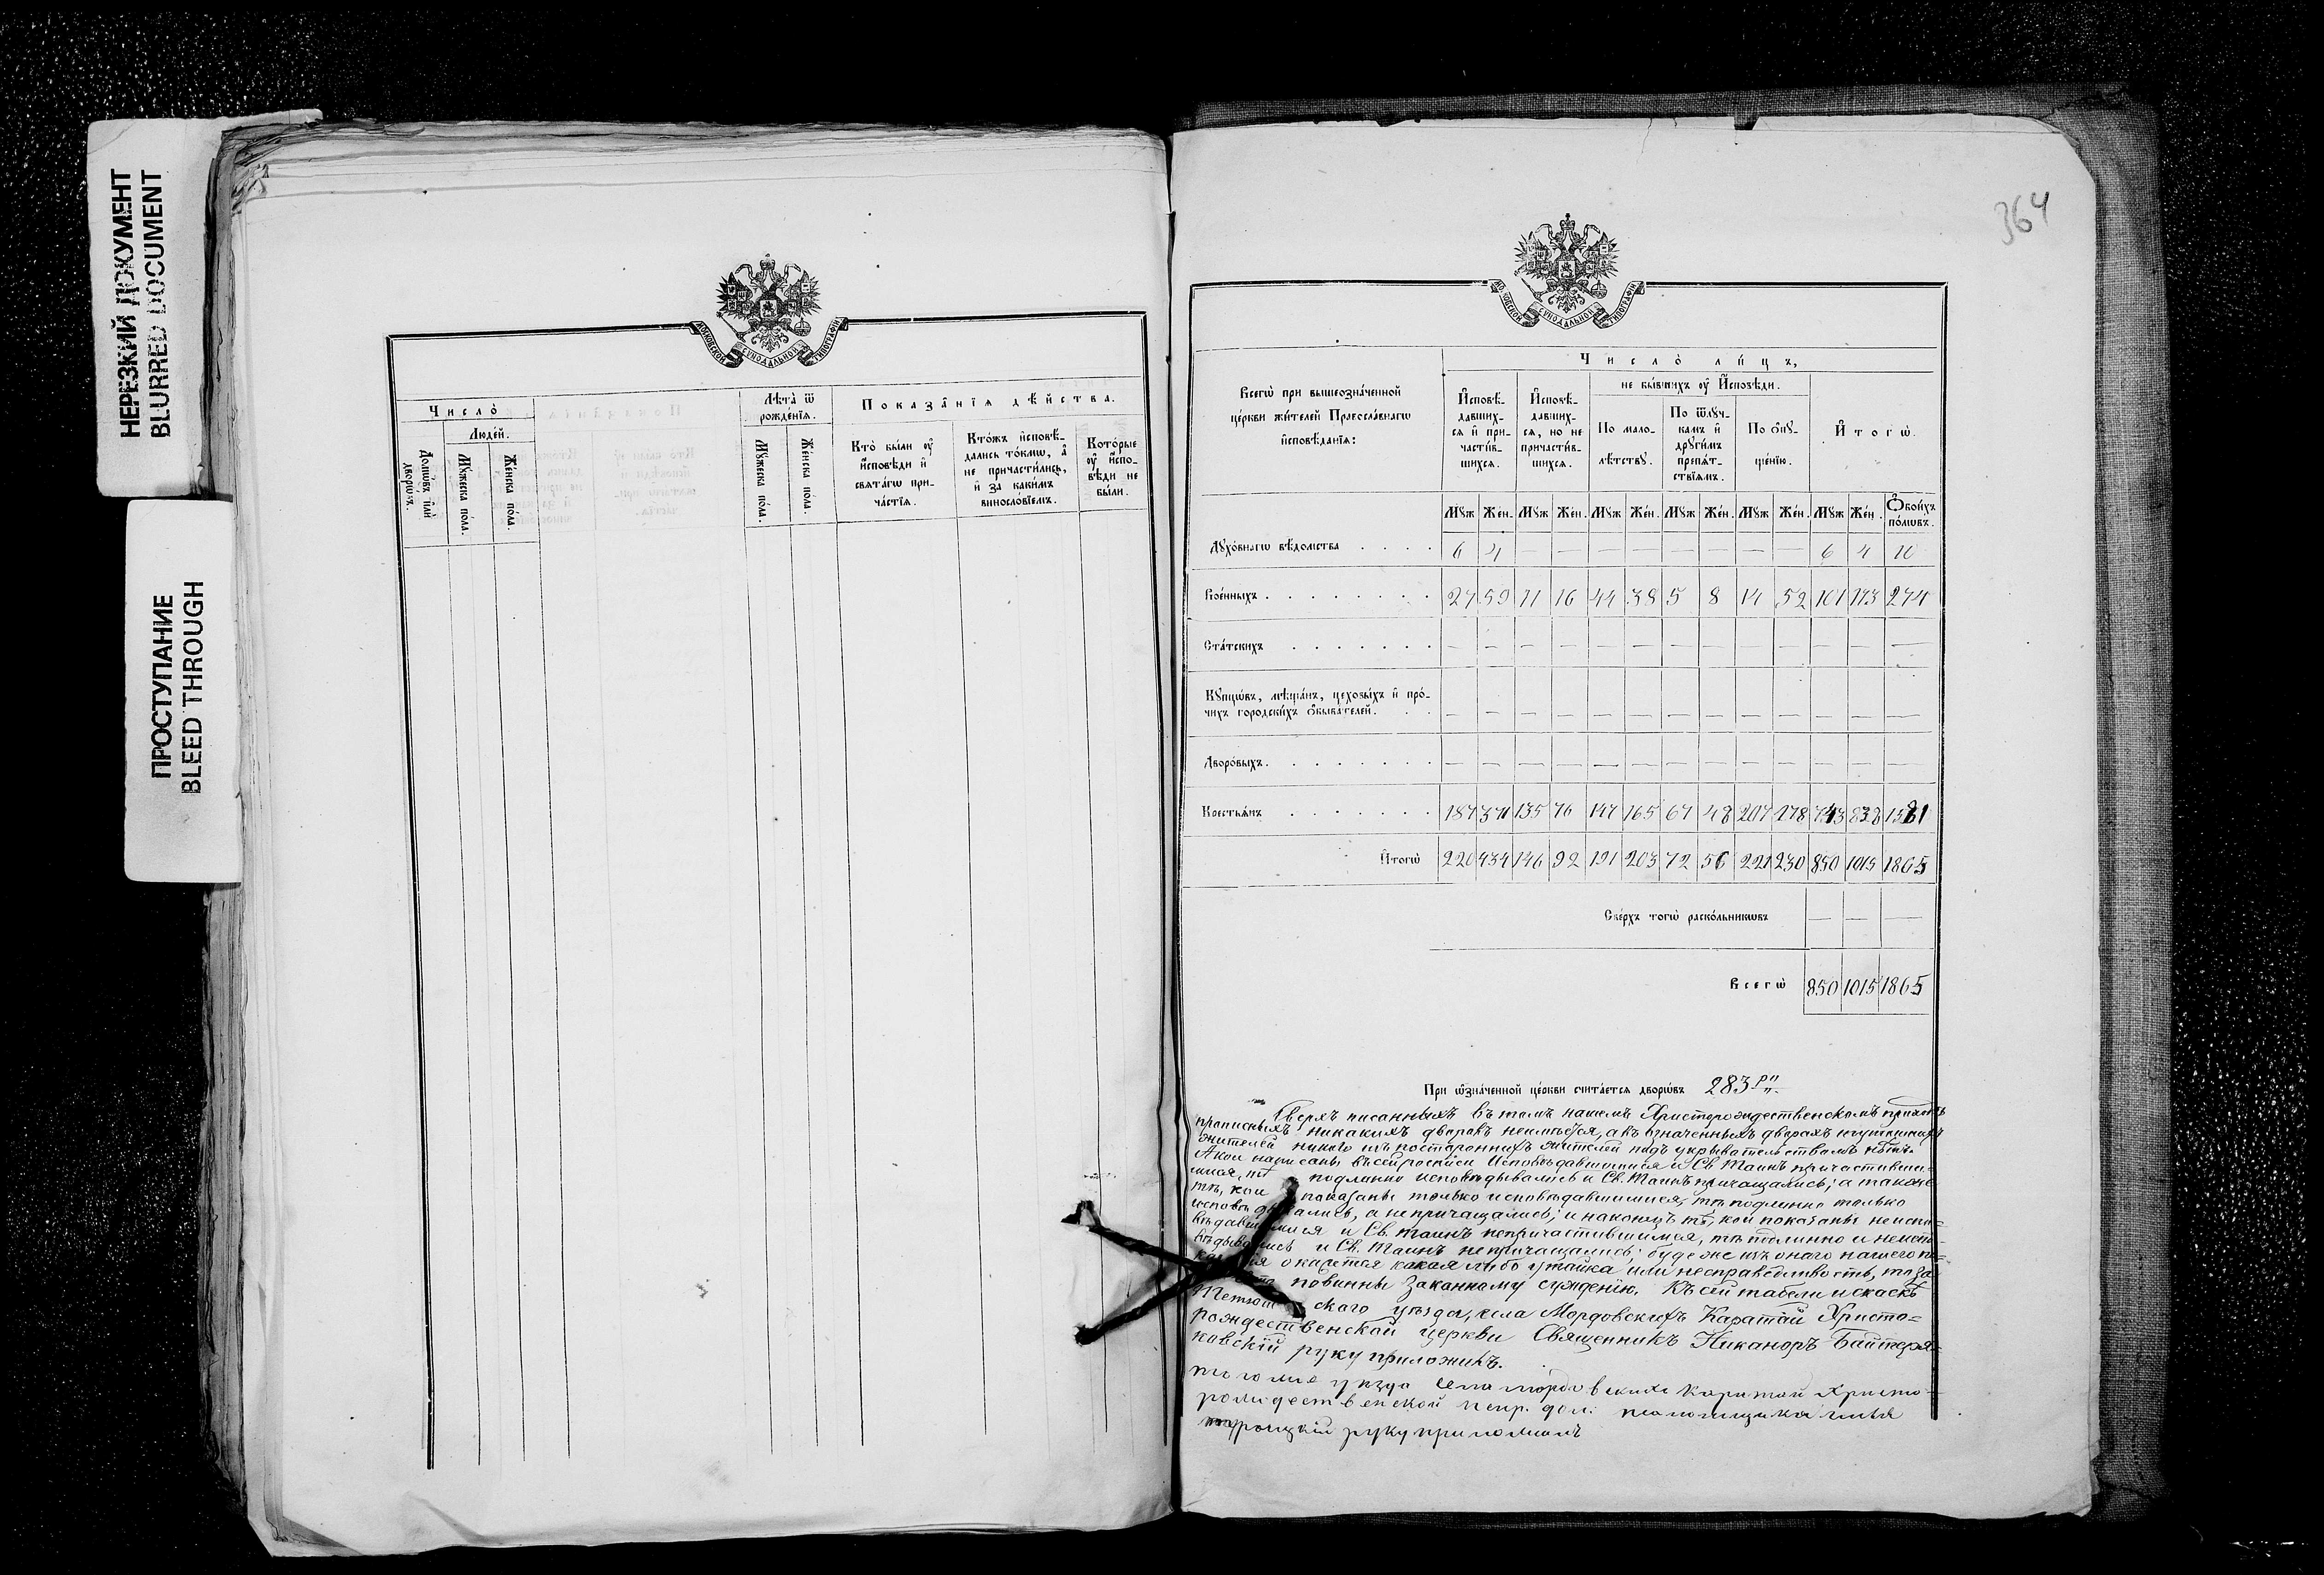 НЕРЕЗКИЙ ДОКУМЕНТ
BLURRED DOCUMENT
ПРОСТУПАНИЕ
BLEED THROUGH
МОСКОВСКОЙ СѴНОДАЛЬНОЙ ТИПОГРАФІИ
Число̀
Люде́й.
Домѡ́въ и҆лѝ дворѡ́въ.
Мꙋ́жеска по́ла.
Же́нска по́ла.
Лѣта̀ ѿ рожде́нїѧ.
Мꙋ́жеска по́ла.
Же́нска по́ла.
Показа̑нїѧ дѣ́йства.
Кто̀ бы́ли ᲂу҆
и҆сповѣ́ди и҆
свѧта́гѡ при-
ча́стїѧ.
Кто́жъ и҆сповѣ́-
дались то́кмѡ, а҆
не причасти́лись,
и҆ за каки́мъ
винослѡ́вїемъ.
Кото́рые
ᲂу҆ и҆спо-
вѣ́ди не
бы́ли.
364
МОСКОВСКОЙ СѴНОДАЛЬНОЙ ТИПОГРАФІИ
Число̀ ли́цъ,
Всегѡ̀ при вышеозна́ченной
це́ркви жи́телей Правосла́внагѡ
и҆сповѣ́данїѧ:
И҆сповѣ́-
давших-
сѧ и҆ при-
части́в-
шихсѧ.
И҆сповѣ́-
давших-
сѧ, но не
причасти́в-
шихсѧ.
не бы́вшихъ ᲂу҆ И҆сповѣ́ди.
По мало-
лѣ́тствꙋ.
По ѿлꙋч-
камъ и҆
дрꙋги́мъ
препѧ́т-
ствїѧмъ.
По ѻ҆пꙋ-
ще́нїю.
И҆тогѡ̀.
Мꙋж Же́н. Мꙋж Же́н. Мꙋж Же́н. Мꙋж Же́н. Мꙋж Же́н. Мꙋж Же́н. Ѻ҆бои́хъ по́лѡвъ.
Дꙋхо́внагѡ вѣ́домства . . . . 6 4 — — — — — — — — 6 4 10
Вое́нныхъ . . . . . . . . 27 59 11 16 44 38 5 8 14 52 101 173 274
Ста́тскихъ . . . . . . . — — — — — — — — — — — — —
Кꙋпцѡ́въ, мѣща́нъ, цеховы́хъ и҆ про́-
чихъ городски́хъ ѻ҆быва́телей. . . — — — — — — — — — — — — —
Дворо́выхъ. . . . . . . . — — — — — — — — — — — — —
Крестьѧ́нъ . . . . . . . 187 371 135 76 147 165 67 48 207 178 743 838 1581
И҆тогѡ̀ 220 434 146 92 191 203 72 56 221 230 850 1015 1865
Све́рхъ тогѡ̀ раско́льникѡвъ — — —
Всегѡ̀ 850 1015 1865
При ѡ҆зна́ченной це́ркви счита́етсѧ дворѡ́въ 283
Сверхъ писанныхъ въ томъ нашемъ Христорождественскомъ приходѣ
прописныхъ никакихъ дворовъ неимѣется, а въ означенныхъ дворахъ
жителей никого изъ постороннихъ жителей подъ укрывательствомъ нѣтъ.
А кои написаны въ сей росписи исповѣдавшимися и Св. Таинъ причастивши-
мися, тѣ подлинно исповѣдывались и Св. Таинъ причащались; а также
тѣ, кои показаны только исповѣдавшимися, тѣ подлинно только
исповѣдывались, а непричащались; и наконецъ тѣ, кои показаны неиспо-
вѣдавшимися и Св. Таинъ непричастившимися, тѣ подлинно и неиспо-
вѣдывались и Св. Таинъ непричащались; буде же изъ онаго нашего по-
окажется какая либо утайка, или несправедливость, то за
повинны законному сужденію. Къ сей табели и сказкѣ
Тетюшскаго уѣзда, села Мордовскихъ Каратай Христо-
рождественской церкви Священникъ Никаноръ
руку приложилъ.
того же уѣзда села Мордовскихъ Каратай Христо-
рождественской церк. псаломщика
руку приложилъ